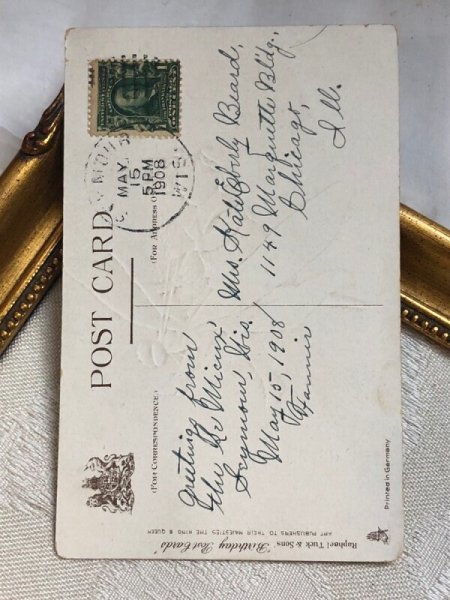 POST CARD
(FOR CORRESPONDENCE)
(FOR ADDRESS O
MAY
15
5 PM
1908
WIS
Greetings from
Seymour, Wis.
May 15, 1908
Fannie
Beard,
1149 Marquette Bldg.,
Chicago,
Ill.
Raphael Tuck & Sons' "Birthday" Post Cards
ART PUBLISHERS TO THEIR MAJESTIES THE KING & QUEEN
Printed in Germany